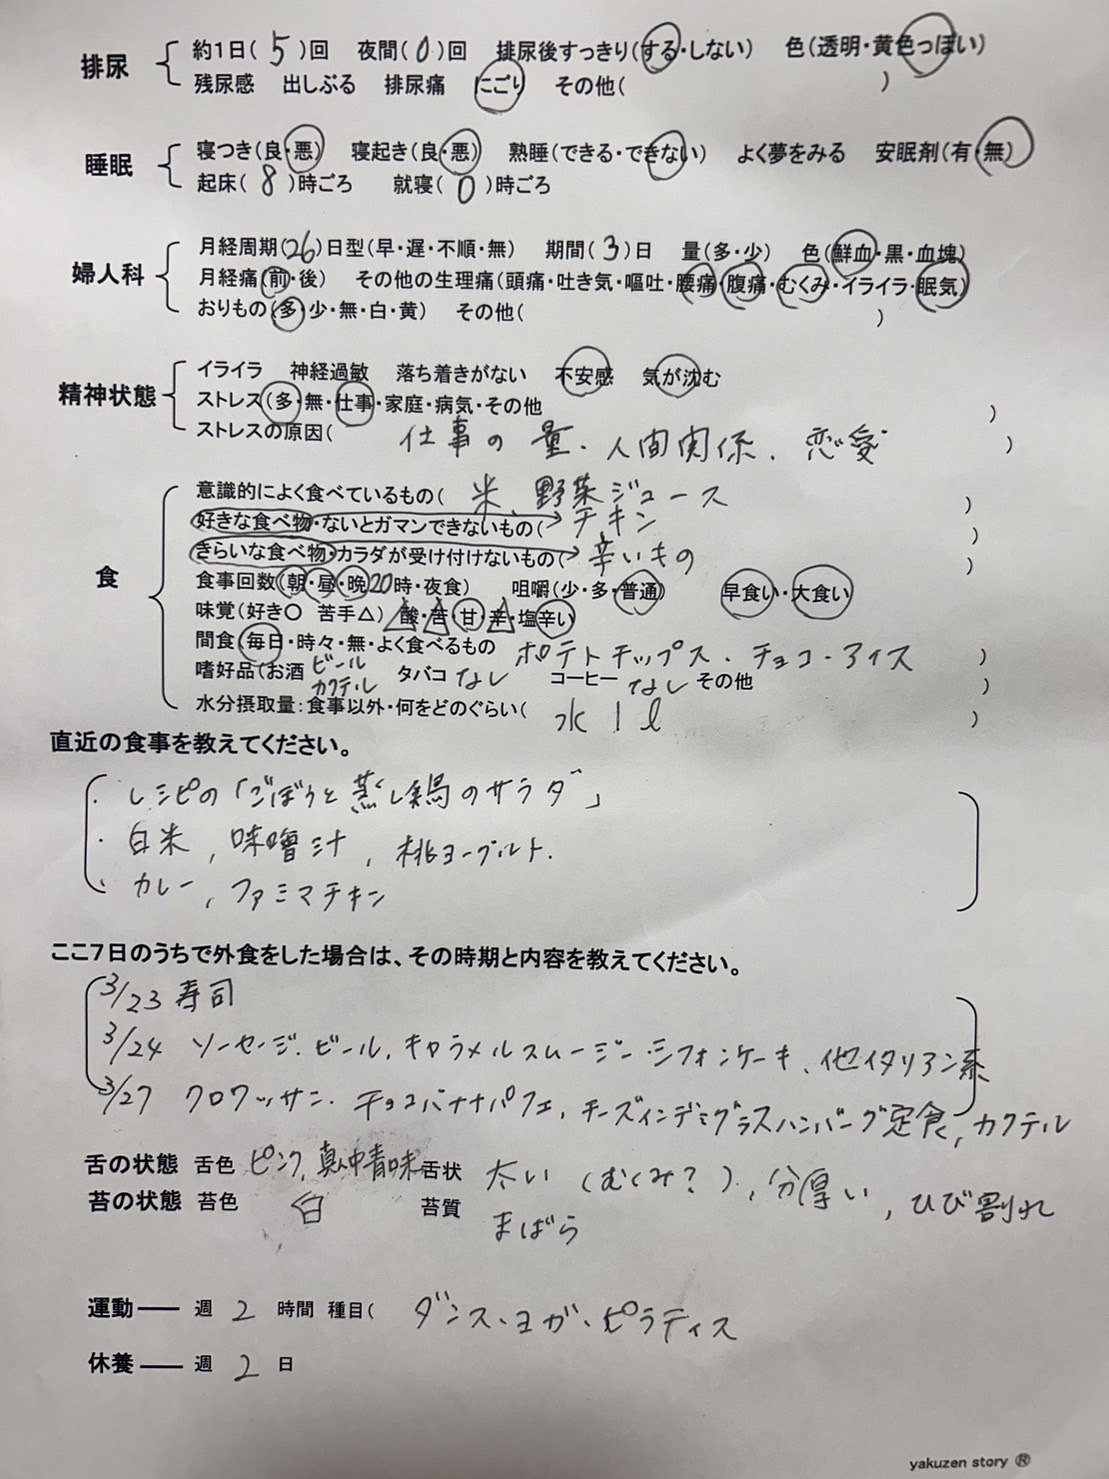 排尿 約1日( 5 )回 夜間( 0 )回 排尿後すっきり(する・しない) 色(透明・黄色っぽい)
残尿感 出しぶる 排尿痛 にごり その他( )
睡眠 寝つき(良・悪) 寝起き(良・悪) 熟睡(できる・できない) よく夢をみる 安眠剤(有・無)
起床( 8 )時ごろ 就寝( 0 )時ごろ
婦人科 月経周期(26)日型(早・遅・不順・無) 期間( 3 )日 量(多・少) 色(鮮血・黒・血塊)
月経痛(前・後) その他の生理痛(頭痛・吐き気・嘔吐・腰痛・腹痛・むくみ・イライラ・眠気)
おりもの(多・少・無・白・黄) その他( )
精神状態 イライラ 神経過敏 落ち着きがない 不安感 気が沈む
ストレス(多・無・仕事・家庭・病気・その他 )
ストレスの原因( 仕事の量、人間関係、恋愛 )
食 意識的によく食べているもの( 米、野菜ジュース )
好きな食べ物・ないとガマンできないもの( チキン )
きらいな食べ物・カラダが受け付けないもの( 辛いもの )
食事回数(朝・昼・晩20時・夜食) 咀嚼(少・多・普通) 早食い・大食い
味覚(好き〇 苦手△) 酸・苦・甘・辛・塩辛い
間食(毎日・時々・無・よく食べるもの ポテトチップス、チョコ・アイス )
嗜好品(お酒 ビール カクテル タバコ なし コーヒー なし その他 )
水分摂取量:食事以外・何をどのぐらい( 水 1ℓ )
直近の食事を教えてください。
・レシピの「ごぼうと蒸し鍋のサラダ」
・白米, 味噌汁, 桃ヨーグルト.
・カレー, ファミマチキン
ここ7日のうちで外食をした場合は、その時期と内容を教えてください。
3/23 寿司
3/24 ソーセージ、ビール、キャラメルスムージー・シフォンケーキ、他イタリアン系
3/27 クロワッサン、チョコバナナパフェ, チーズインデミグラスハンバーグ定食, カクテル
舌の状態 舌色 ピンク, 真ん中青味 舌状 太い (むくみ?), 分厚い, ひび割れ
苔の状態 苔色 白 苔質 まばら
運動 ── 週 2 時間 種目( ダンス、ヨガ、ピラティス
休養 ── 週 2 日
yakuzen story ®